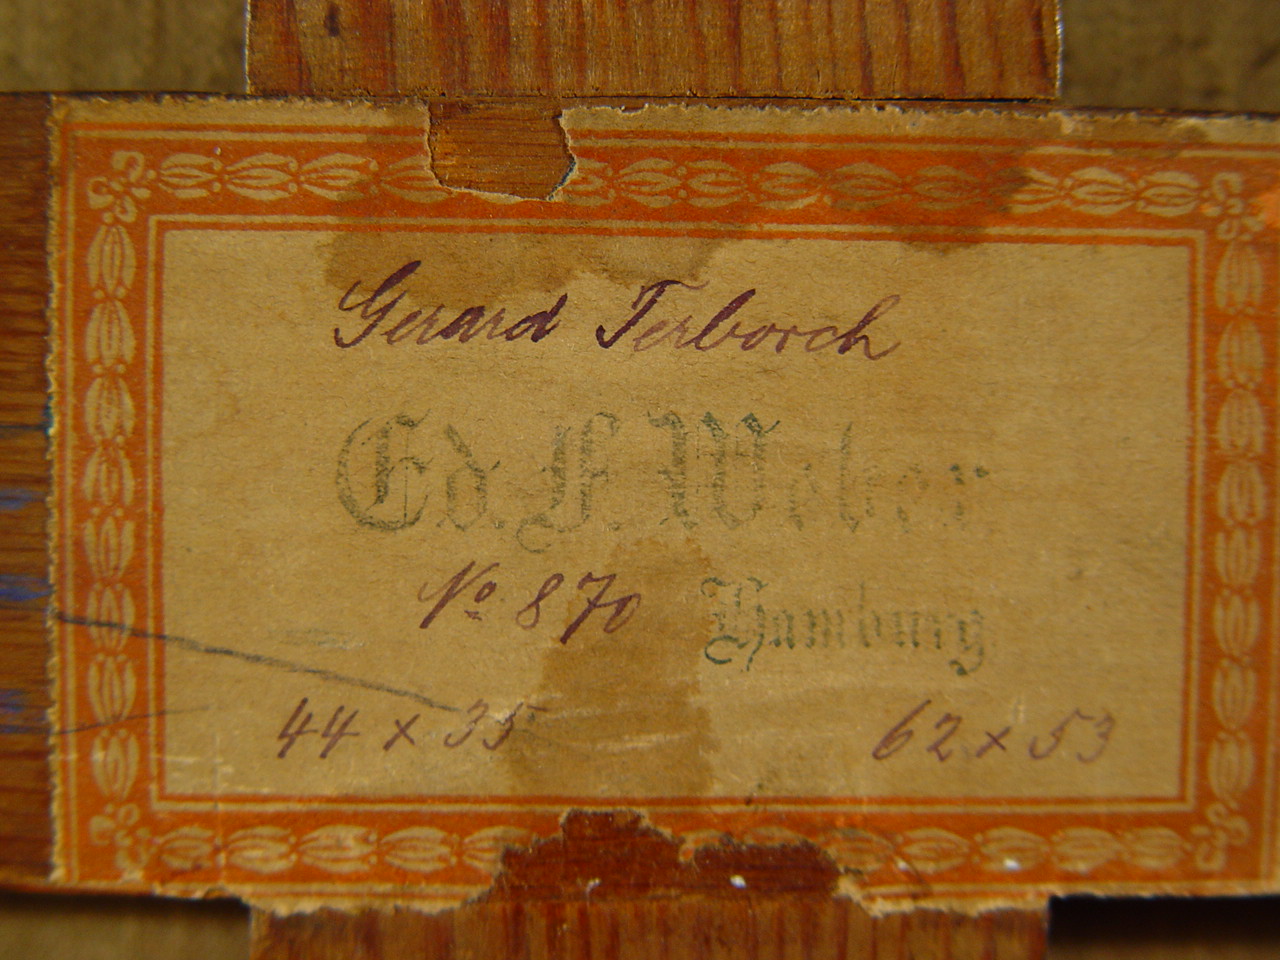 Gerard Terborch
Ed. F. Weber
No. 870
Hamburg
44 x 35
62 x 53